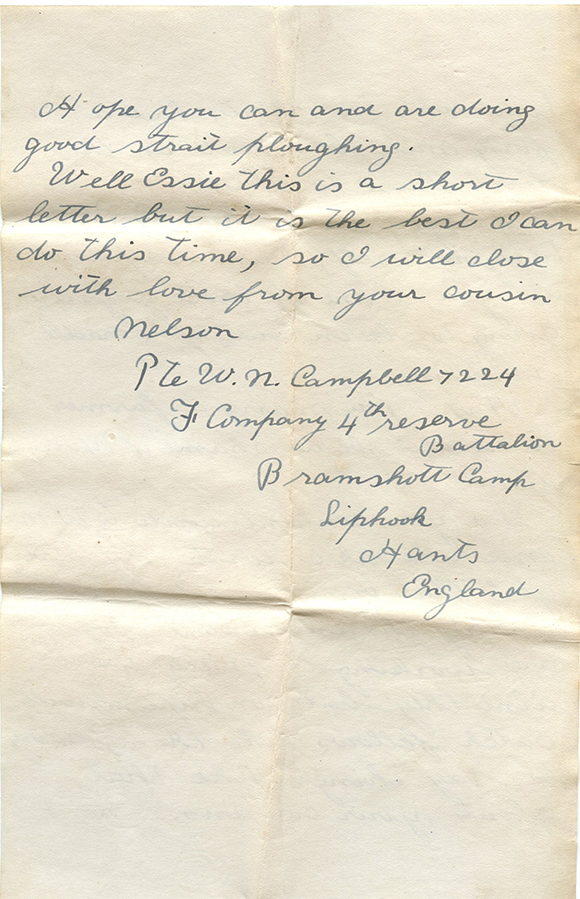 Hope you can and are doing
good strait ploughing.
Well Essie this is a short
letter but it is the best I can
do this time, so I will close
with love from your cousin
Nelson
Pte W. N. Campbell 7224
F Company 4th reserve
Battalion
Bramshott Camp
Liphook
Hants
England